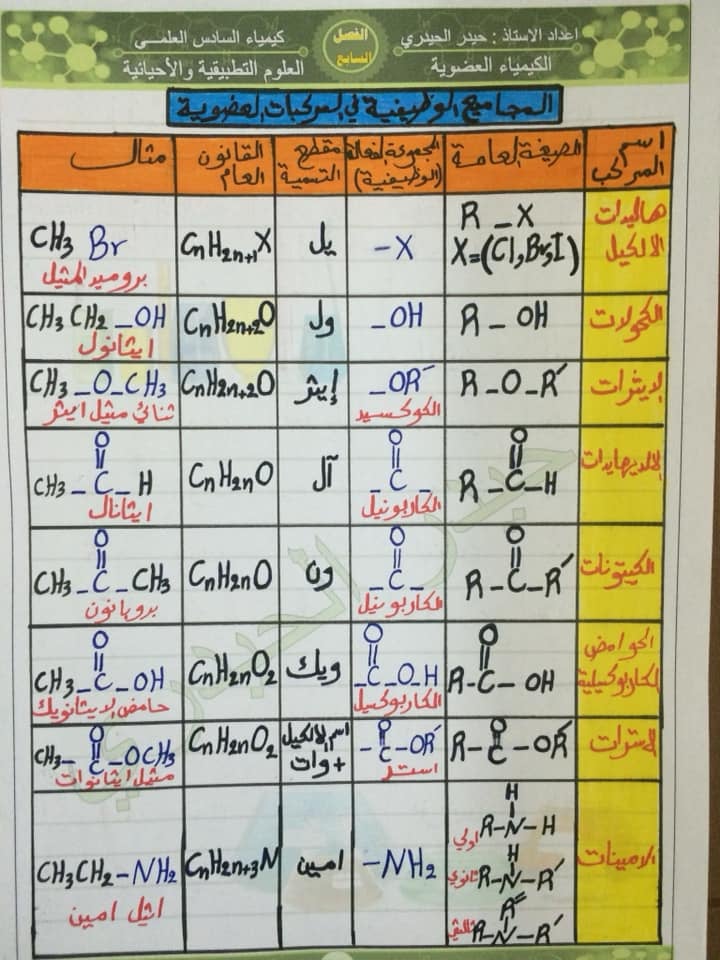 اعداد الاستاذ : حيدر الحيدري
الكيمياء العضوية
الفصل
السابع
كيمياء السادس العلمي
العلوم التطبيقية والأحيائية
المجاميع الوظيفية في المركبات العضوية
اسم المركب | الصيغة العامة | المجموعة الفعالة (الوظيفية) | مقطع التسمية | القانون العام | مثال
هاليدات الالكيل | R – X X=(Cl,Br,I) | –X | يل | CnH2n+1X | CH3 Br بروميد المثيل
الكحولات | R – OH | –OH | ول | CnH2n+2O | CH3 CH2 –OH ايثانول
الايثرات | R –O–R′ | –OR′ الكوكسيد | إيثر | CnH2n+2O | CH3 –O–CH3 ثنائي مثيل ايثر
الالديهايدات | R –C(=O)–H | –C(=O)– الكاربونيل | آل | CnH2nO | CH3 –C(=O)– H ايثانال
الكيتونات | R –C(=O)–R′ | –C(=O)– الكاربونيل | ون | CnH2nO | CH3–C(=O)–CH3 بروبانون
الحوامض الكاربوكسيلية | R–C(=O)– OH | –C(=O)–O–H الكاربوكسيل | ويك | CnH2nO2 | CH3–C(=O)–OH حامض الايثانويك
الاسترات | R–C(=O)–OR′ | –C(=O)–OR′ استر | اسم الالكيل + وات | CnH2nO2 | CH3–C(=O)–OCH3 مثيل ايثانوات
الامينات | اولي R–N(H)–H ثانوي R–N(H)–R′ ثالثي R–N(R″)–R′ | –NH2 | امين | CnH2n+3N | CH3CH2–NH2 اثيل امين
حيدر الحيدري